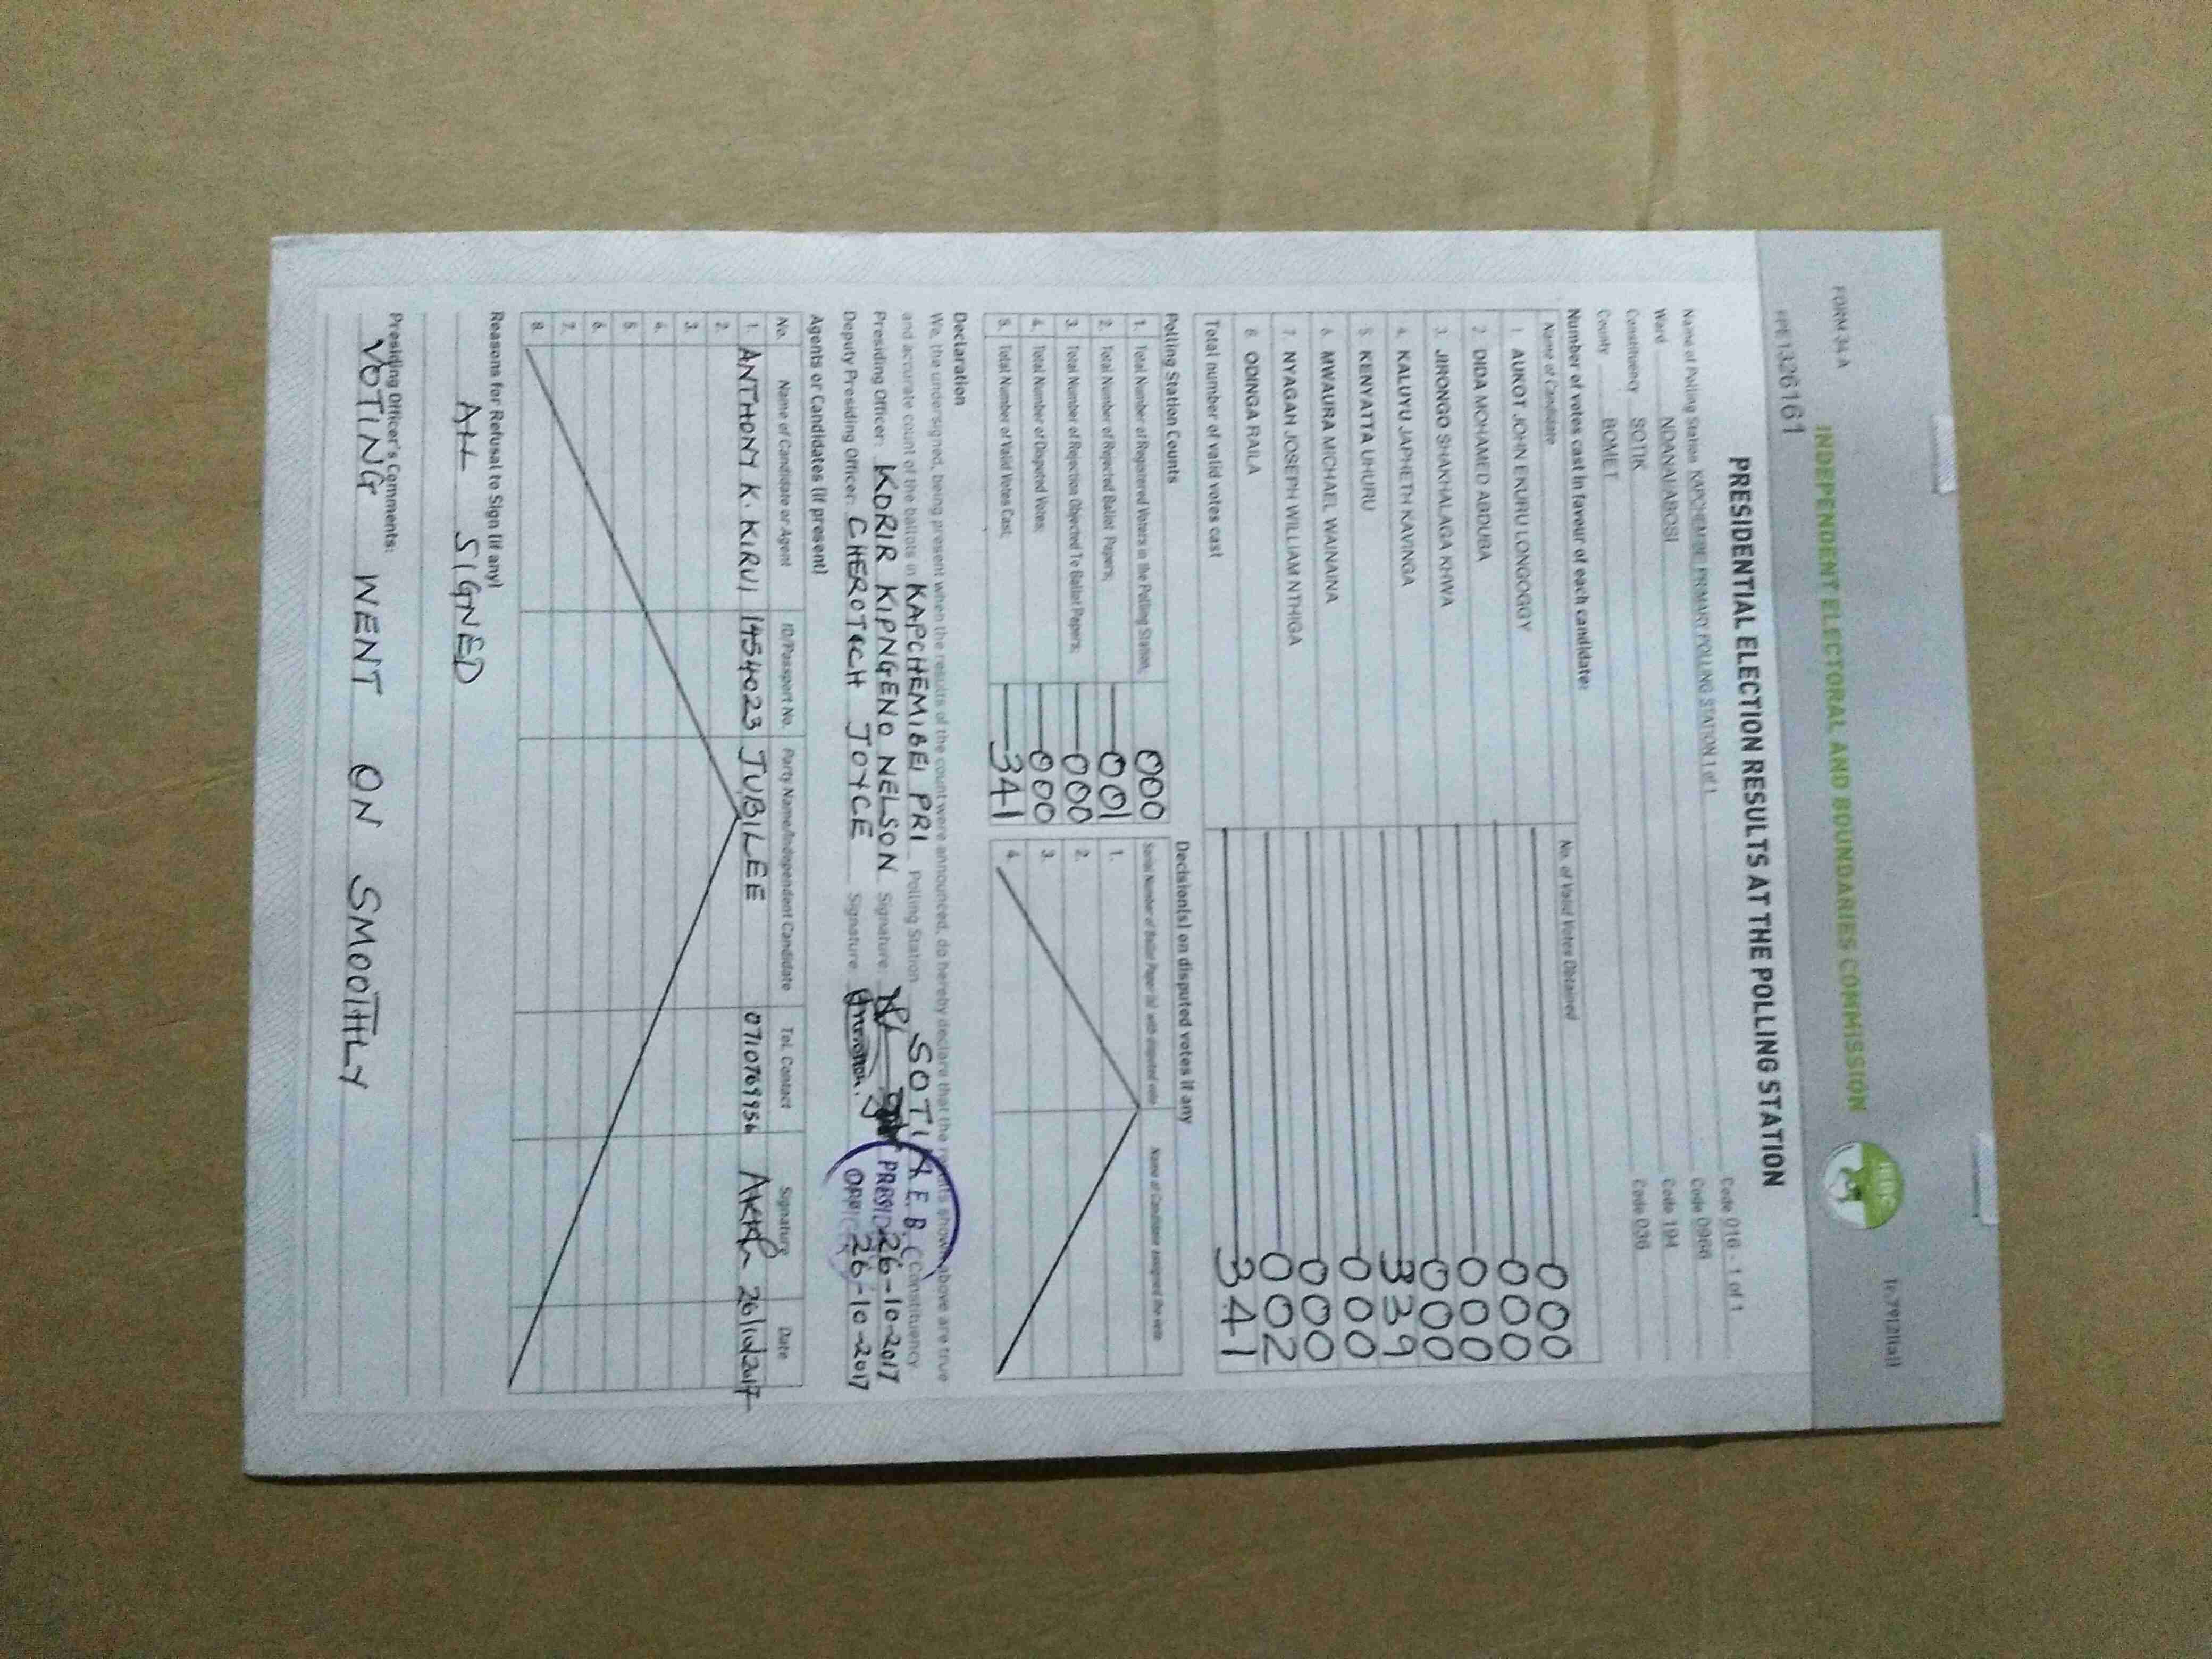 FORM 34 A
INDEPENDENT ELECTORAL AND BOUNDARIES COMMISSION
1326161
PRESIDENTIAL ELECTION RESULTS AT THE POLLING STATION
Name of Polling Station KAPCHEMIBEI PRIMARY POLLING STATION 1 of 1 Code 016 - 1 of 1
Ward NDANAI/ABOSI Code 0966
Constituency SOTIK Code 194
County BOMET Code 036
Number of votes cast in favour of each candidate:
Name of Candidate No. of Valid Votes Obtained
1 AUKOT JOHN EKURU LONGOGGY 000
2 DIDA MOHAMED ABDUBA 000
3 JIRONGO SHAKHALAGA KHWA 000
4 KALUYU JAPHETH KAVINGA 000
5 KENYATTA UHURU 339
6 MWAURA MICHAEL WAINAINA 000
7 NYAGAH JOSEPH WILLIAM NTHIGA 000
8 ODINGA RAILA 002
Total number of valid votes cast 341
Polling Station Counts
1. Total Number of Registered Voters in the Polling Station; 000
2. Total Number of Rejected Ballot Papers; 001
3. Total Number of Rejection Objected To Ballot Papers; 000
4. Total Number of Disputed Votes; 000
5. Total Number of Valid Votes Cast; 341
Decision(s) on disputed votes if any
Serial Number of Ballot Paper (s) with disputed vote Name of Candidate assigned the vote
1.
2.
3.
4.
Declaration
We, the undersigned, being present when the results of the count were announced, do hereby declare that the results shown above are true
and accurate count of the ballots in KAPCHEMIBEI PRI Polling Station SOTIK Constituency
Presiding Officer: KORIR KIPNGENO NELSON Signature 26-10-2017
Deputy Presiding Officer: CHEROTICH JOYCE Signature 26-10-2017
I.E.B.C
PRESIDING
OFFICER
Agents or Candidates (if present)
No. Name of Candidate or Agent ID/Passport No. Party Name/Independent Candidate Tel. Contact Signature Date
1. ANTHONY K. KIRUI 1454023 JUBILEE 0710769956 26/10/2017
2.
3.
4.
5.
6.
7.
8.
Reasons for Refusal to Sign (if any)
ALL SIGNED
Presiding Officer's Comments:
VOTING WENT ON SMOOTHLY